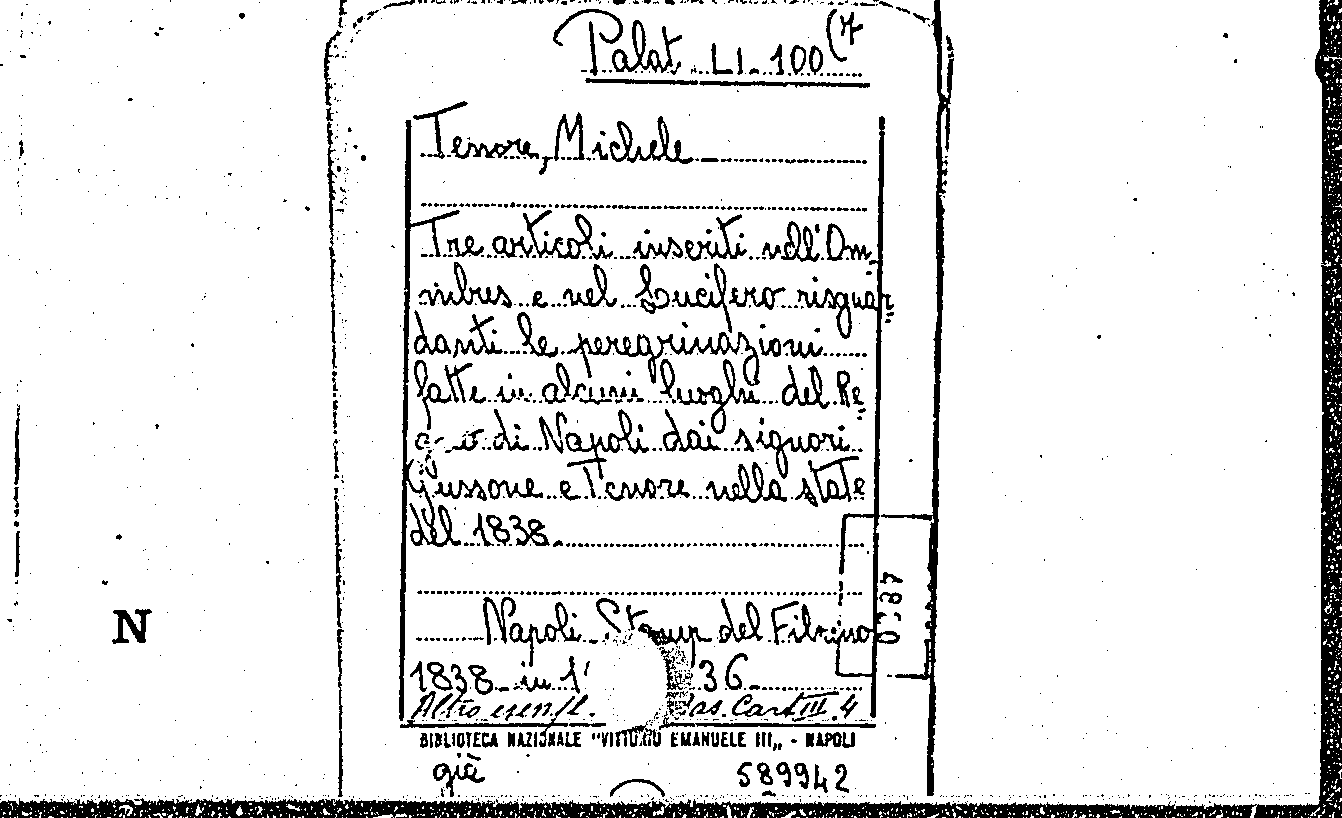 Palat LI. 100 (7
Tenore, Michele
Tre articoli inseriti nell'Om-
nibus e nel Lucifero risguar-
danti le peregrinazioni
fatte in alcuni luoghi del Re-
di Napoli dai signori
Gussone e Tenore nella state
del 1838.
Napoli Stamp del Filiatre
1838 in 36
Altro esempl. Cart III. 4
BIBLIOTECA NAZIONALE "VITTORIO EMANUELE III„ - NAPOLI
già 589942
N